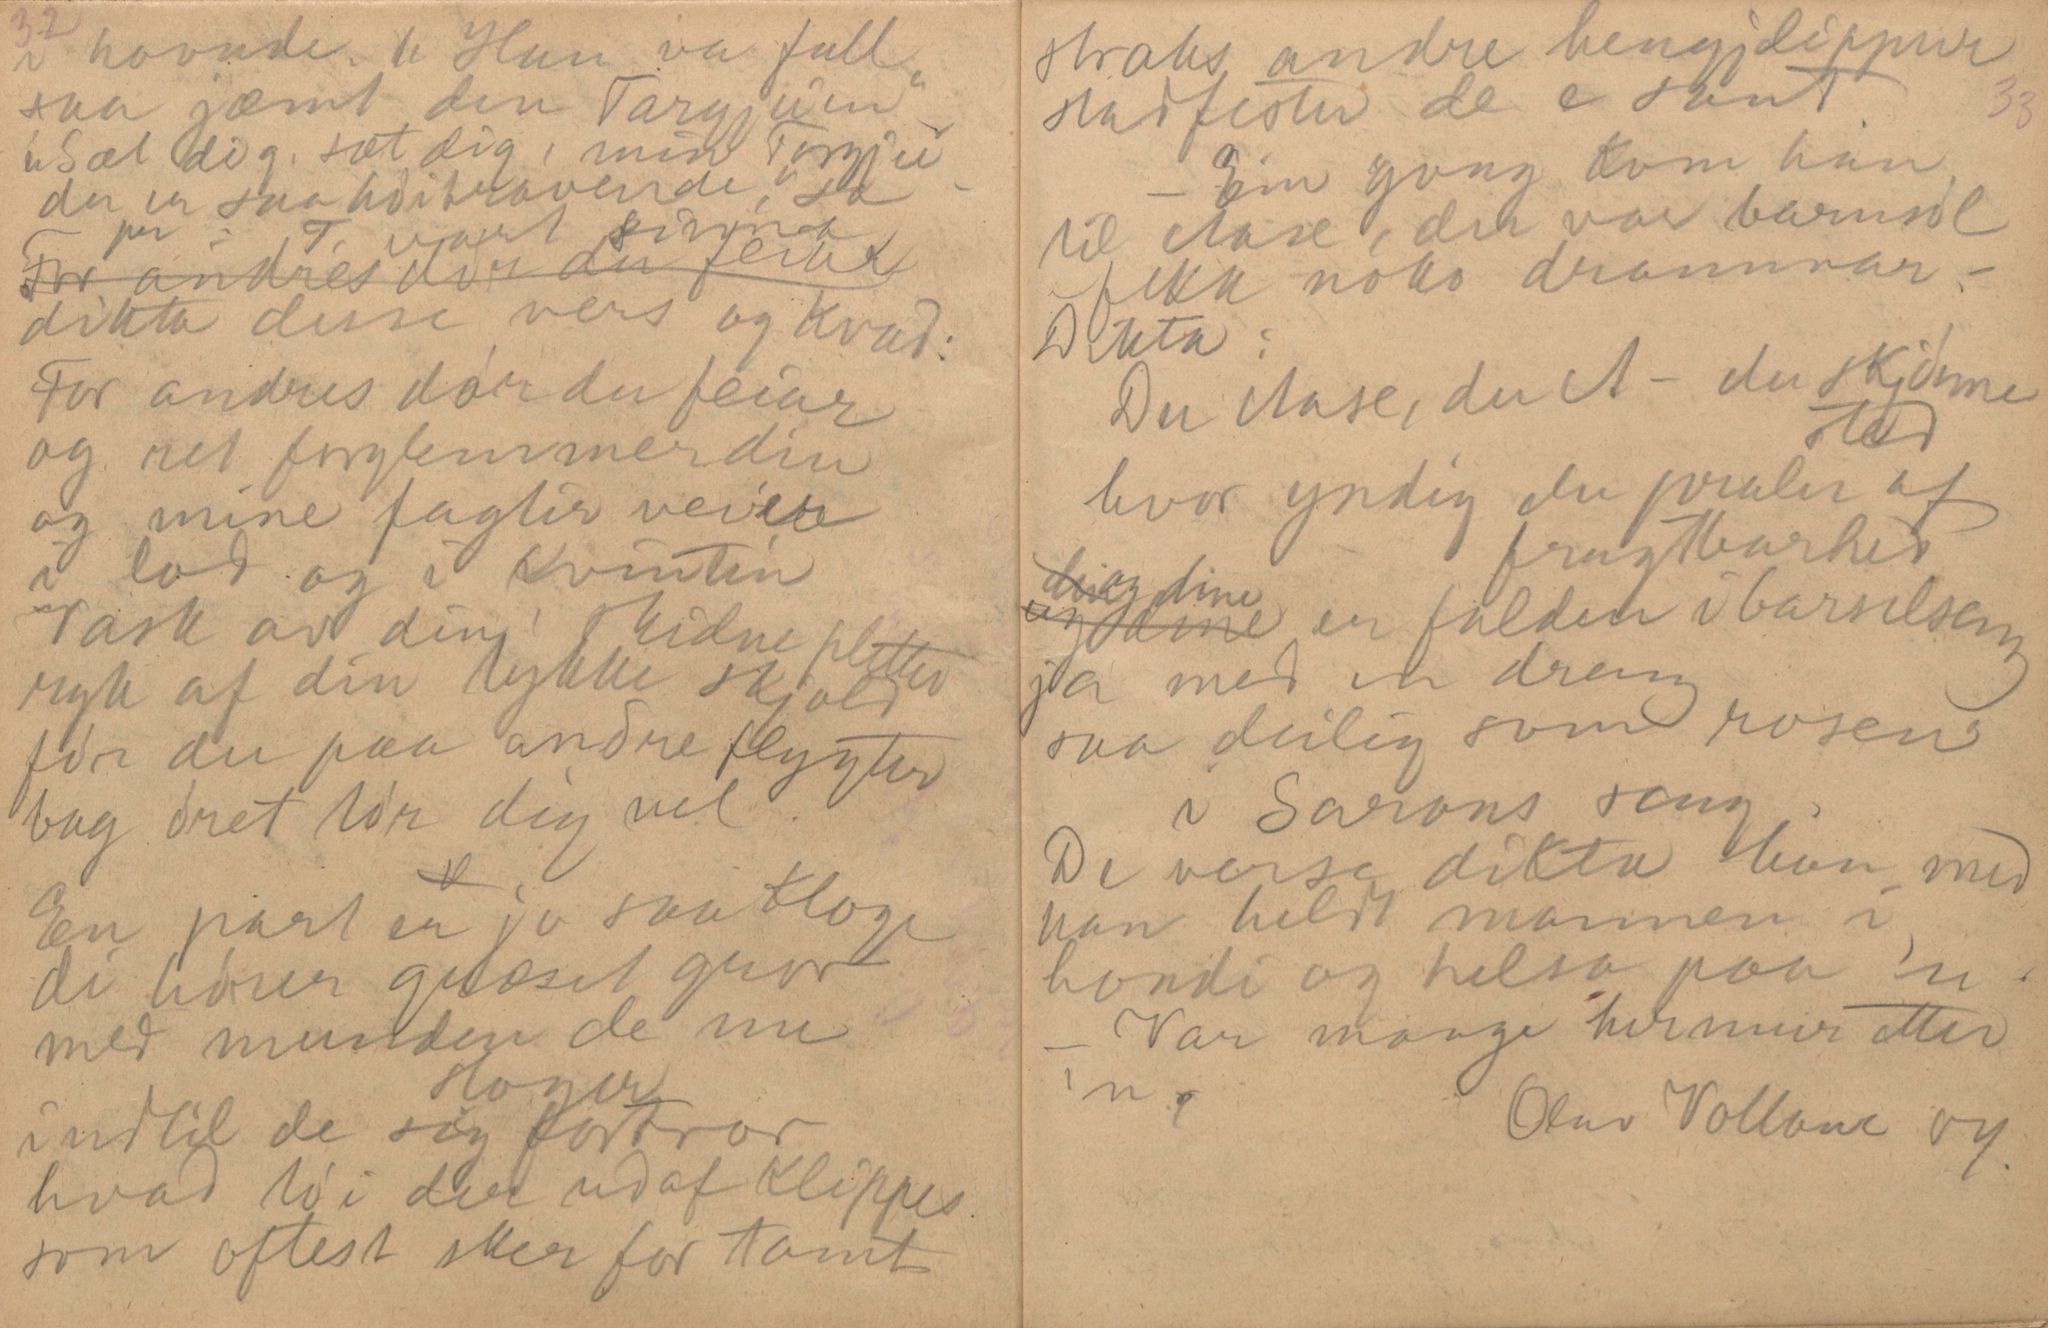 32
i hovude. " Han va full
saa jæmt den Targjuien"
"Sæt dig, sæt dig, min Torgju
du er saa høitravende, " sa
per - T. vart sinna
For andres dør du feiar
dikta desse vers og kvad:
For andres dør du feiar
og ret forglemmer din
og mine fagter veier
i lod og i kvintin
Vask av dine skidne pletter
ryk af din tykke skjold
før du paa andre flygter
bag øret tør dig vel.
En part er jo saa kloge
de hører græset gror
med munden de nu
stoger
indtil de sig fortror
hvad tøi der udaf klippes
som oftest sker for tamt
33
straks andre hengjdippur
stadfester de e sant
- Ein gong kom han
til Aase, der var barnsøl
fekk noko drammar. -
Dikta:
Du Aase, du A - du skjønne
sted
hvor yndig du praler af
frugtbarhed
og dine
og dine er falden i barselseng
ja med en dreng
saa deilig som rosen
i Sarons seng.
De verse dikta han med
han heldt mannen i
hondi og helsa paa 'n.
- Var mange hermur etter
'n.
Olav Vollane og.